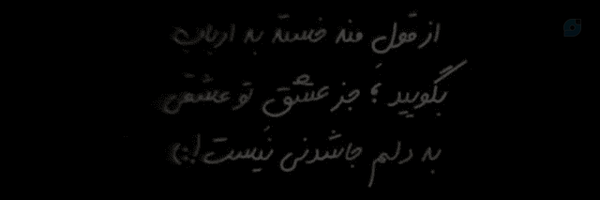 از قولِ منه خسته به ارباب
بگویید؛ جز عشق تو عشقی
به دلم جاشدنی نیست!:)